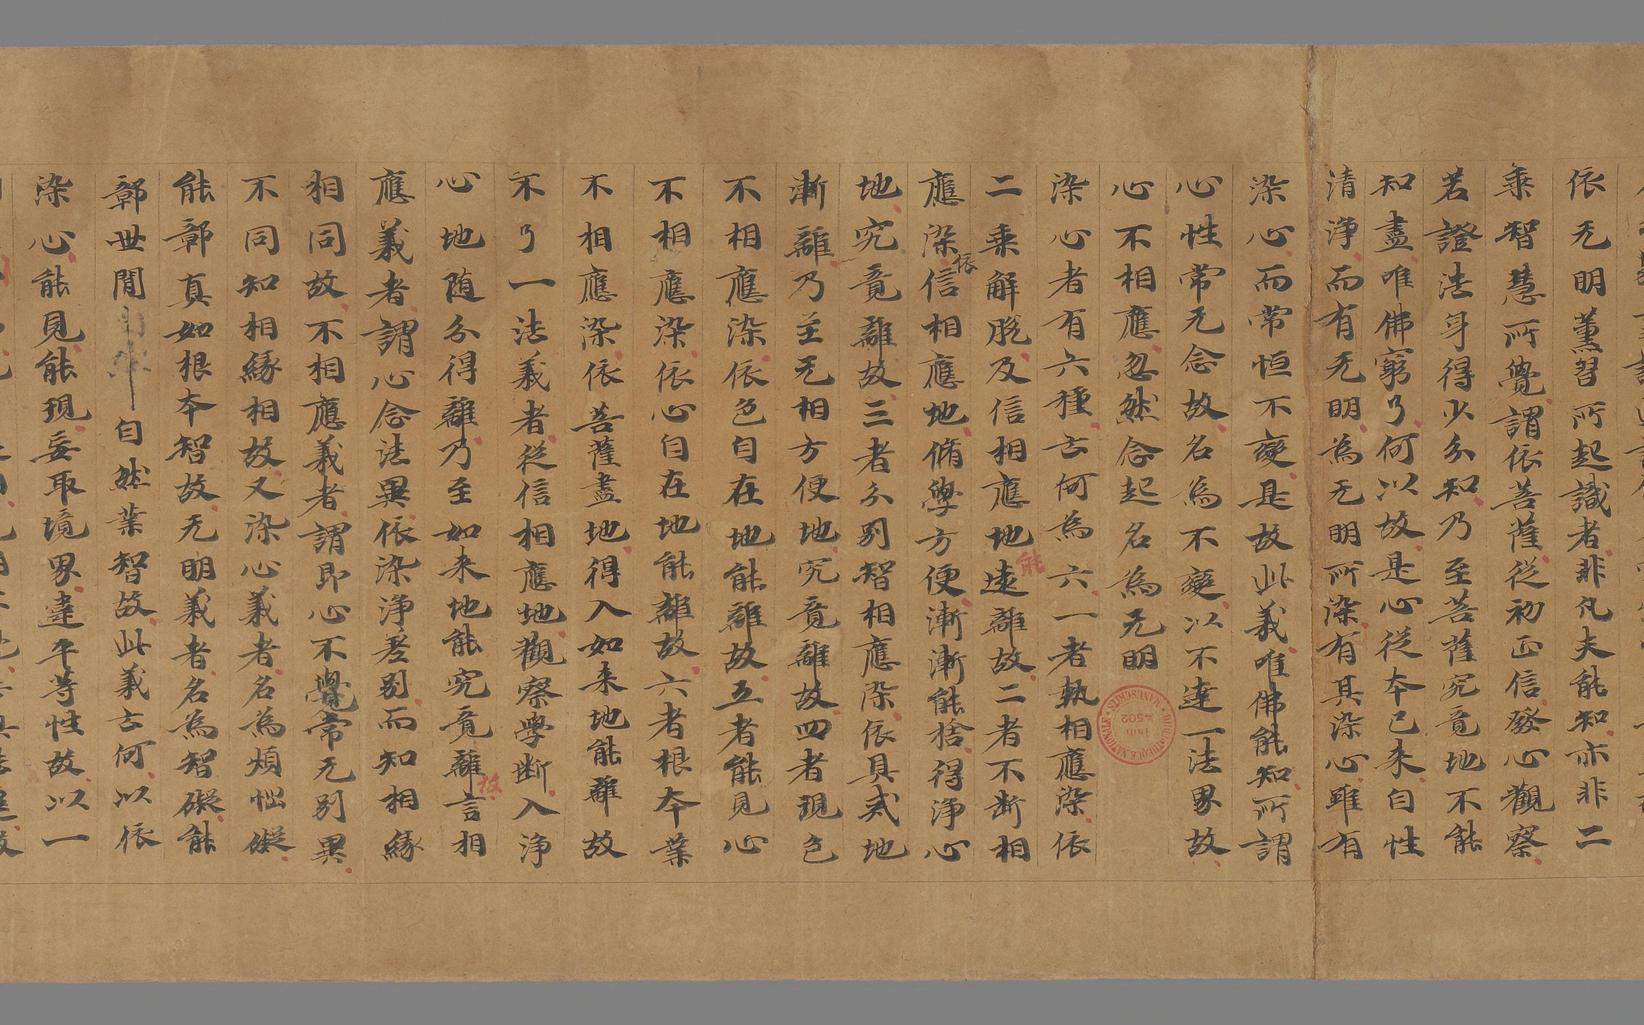 依无明薰習所起識者非凡夫能知亦非二
乘智慧所覺謂依菩薩從初正信發心觀察
若證法身得少分知乃至菩薩究竟地不能
知盡唯佛窮了何以故是心從本已来自性
清淨而有无明為无明所染有其染心雖有
染心而常恒不變是故此義唯佛能知所謂
心性常无念故名為不變以不達一法界故
心不相應忽然念起名為无明
染心者有六種云何為六一者執相應染依
二乘解脫及信相應地能遠離故二者不斷相
應染依信相應地脩學方便漸漸能捨得淨心
地究竟離故三者分別智相應染依具貳地
漸離乃至无相方便地究竟離故四者現色
不相應染依色自在地能離故五者能見心
不相應染依心自在地能離故六者根本業
不相應染依菩薩盡地得入如来地能離故
不了一法義者從信相應地觀察學斷入淨
心地随分得離乃至如来地能究竟離故言相
應義者謂心念法異依染淨差別而知相緣
相同故不相應義者謂即心不覺常无別異
不同知相緣相故又染心義者名為煩惱礙
能鄣真如根本智故无明義者名為智礙能
鄣世間自然業智故此義云何以依
染心能見能現妄取境界違平等性故以一
BIBLIOTHEQUE NATIONALE MANUSCRITS